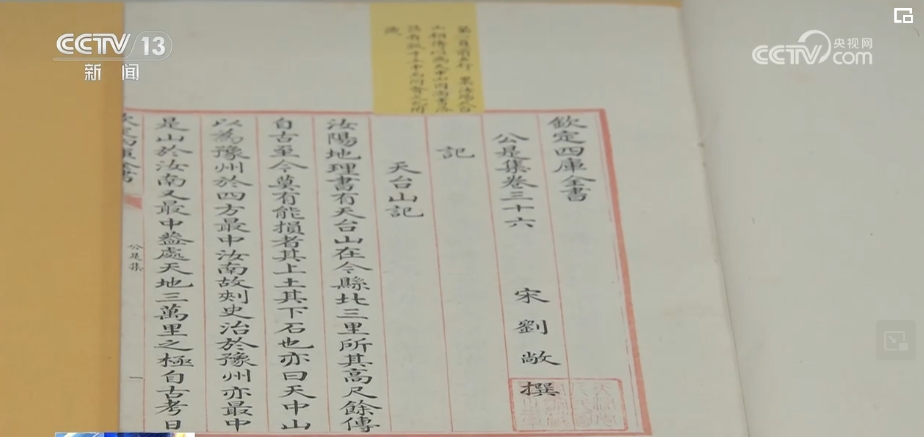 CCTV 13
新闻
央视网
CCTV.com
欽定四庫全書
公是集卷三十六
宋 劉敞 撰
記
天台山記
汝陽地理書有天台山在今縣北三里所其高尺餘傳
自古至今莫有能損者其上土其下石也亦曰天中山
以為豫州於四方最中汝南故刺史治於豫州亦最中
是山於汝南又最中葢處天地三萬里之極自古考日
公是集
一